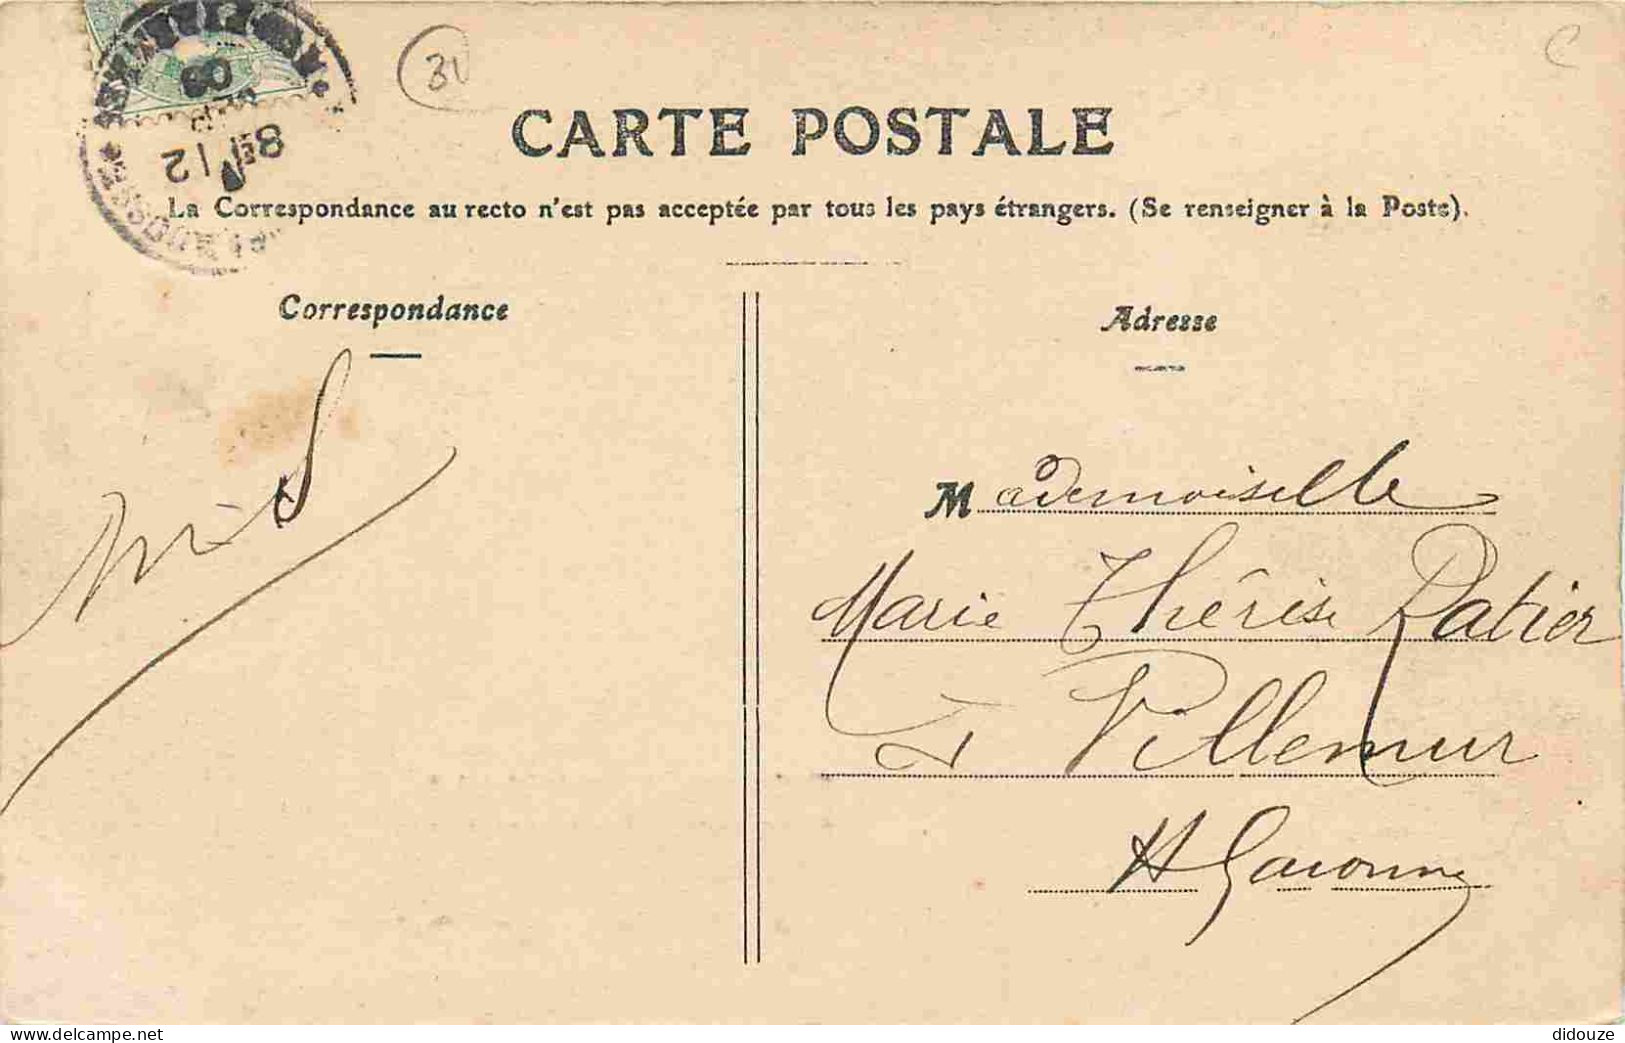 CARTE POSTALE
La Correspondance au recto n'est pas acceptée par tous les pays étrangers. (Se renseigner à la Poste).
Correspondance
Adresse
Mademoiselle
Marie Thérèse Ratier
à Villemur
H Garonne
8 12
08
31
C
delcampe.net
didouze